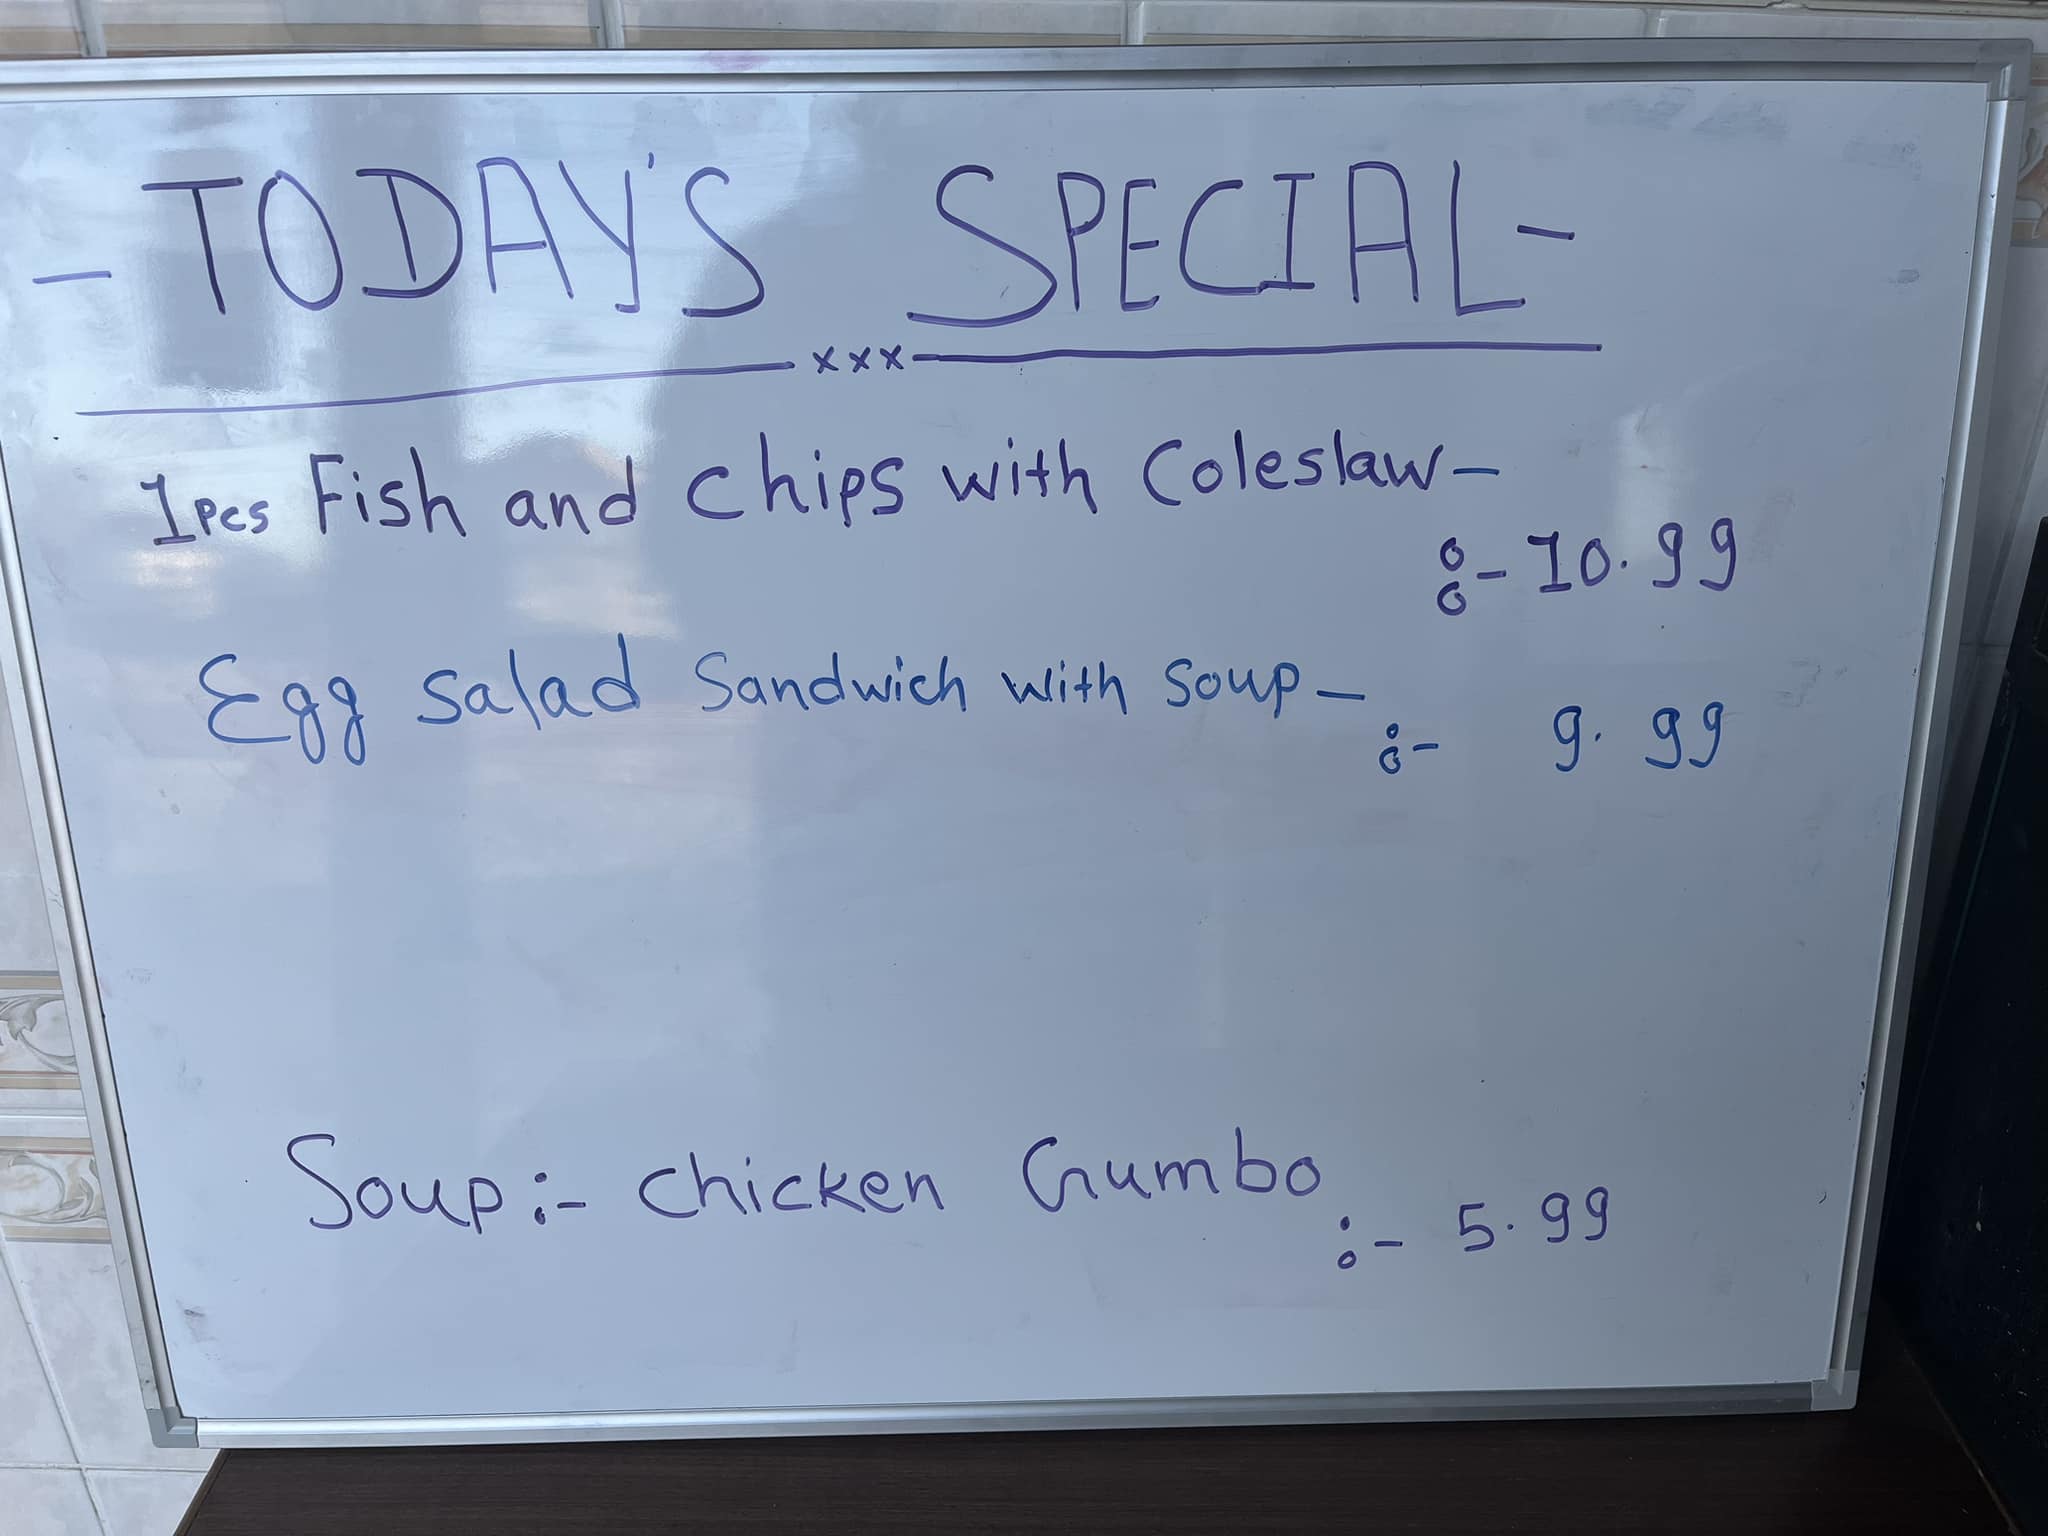 - TODAY'S SPECIAL -
xxx
1pcs Fish and Chips with Coleslaw -
:- 10.99
Egg Salad Sandwich with Soup -
:- 9.99
Soup :- Chicken Gumbo
:- 5.99